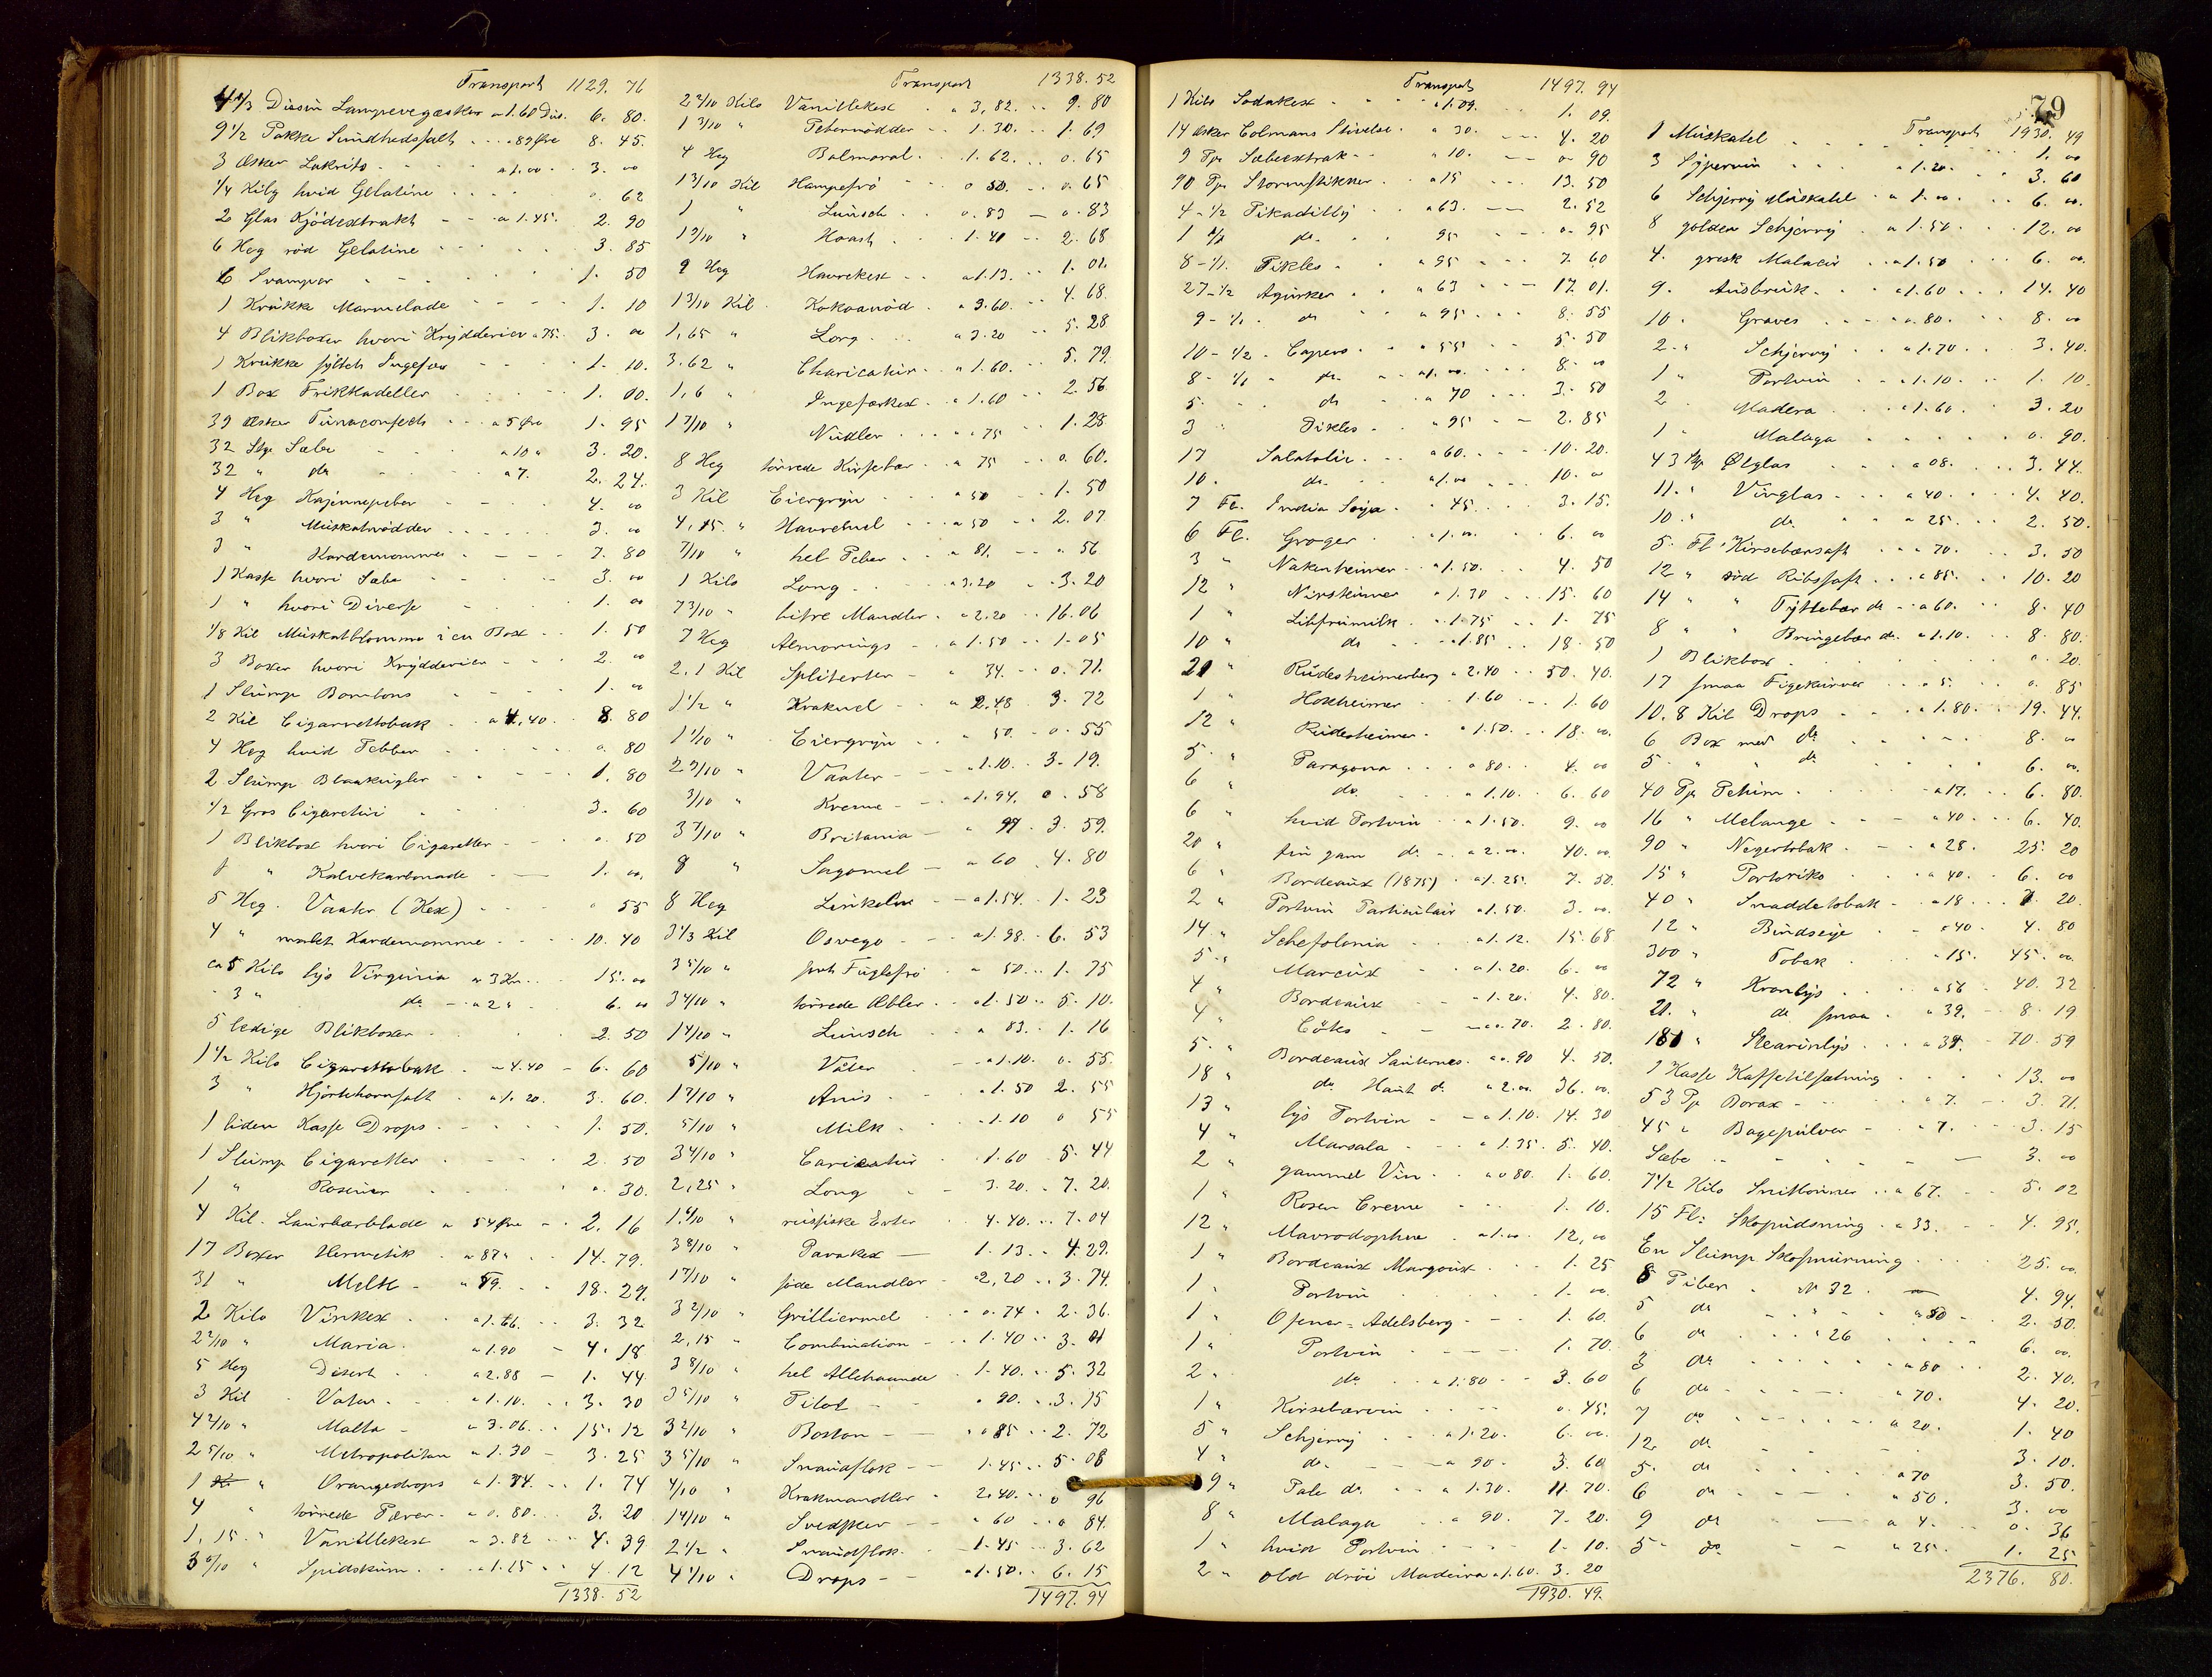 Transport 1129. 76
4 1/3 Dusin Lampevegæsker a 1.60 Dus. 6. 80.
9 1/2 Pakke Sundhedssalt . . a 89 Øre 8. 45.
3 Æsker Lakrits . . a 1.00 . . 3. 00
1/4 Kilg hvid Gelatine . . . . 0. 62
2 Glas Kjödextrakt - - a 1.45. 2. 90
6 Heg röd Gelatine . . . . 3. 85
6 Svamper - - . . 1. 50
1 Krukke Marmelade - - - - 1. 10
4 Blikboxer hvori Krydderier a 75. 3. 00
1 Krukke syltet Ingefær - - - 1. 10.
1 Box Frikkadeller . . . 1. 00.
39 Æsker Tunaconfect . . a 5 Øre 1. 95
32 Stk Sæbe - - a 10 " 3. 20.
32 " do - - a 7. 2. 24.
4 Heg Kajennepeber - - - 4. 00
3 " Muskatnødder . . . . 3. 00
3 " Kardemomme - - - - 7. 80
1 Kasse hvori Sæbe - - - 3. 00
1 " hvori Diverse - . . 1. 00
1/8 Kil Muskatblomme i en Box . . 1. 50
3 Boxer hvori Krydderier - - . 2. 00
1 Slump Bonbons - - - - 1. 00
2 Kil Cigarettobak . . a 4,40 . 8. 80
4 Heg hvid Pebber - - - . 0. 80
2 Slump Blaakugler - - - - 1. 80
1/2 Gros Cigaretui " . . 3. 60
1 Blikbox hvori Cigaretter - - . 0. 50
1 " Kalvekarbonade - — 1. 00.
5 Heg. Vaater (Kex) - - - 0. 55
4 " malet Kardemomme - - - - 10. 40
ca 5 Kilo lys Virginia a 3 Kr. . . 15. 00
- 3 " do - a 2 " . 6. 00
5 ledige Blikboxer . . . 2. 50
1 1/2 Kilo Cigarettobak . - 4.40 - 6. 60
3 " Hjortehornsalt . a 1. 20. 3. 60.
1 liden Kasse Drops . - - - 1. 50.
1 Slump Cigaretter - - - - 2. 50
1 " Rosiner . . . . 0. 30.
4 Kil. Laurbærblade a 54 Øre - . 2. 16
17 Boxer Hermetik . a 87 " . . 14. 79.
31 " Melk - " 59. . . 18. 29.
2 Kilo Vinkex . . a 1.66. . . 3. 32
2 2/10 " Maria . a 1.90 - 4. 18
5 Heg Disert . . a 2.88 - 1. 44
3 Kil Vater . . a 1.10. . . 3. 30
4 2/10 " Malta - a 3.06. . . 15. 12
2 5/10 " Metropolitan a 1.30 - 3. 25
1 " Orangedrops a 1.74. . . 1. 74
4 " törrede Pærer. a 0. 80. . . 3. 20
1,15 . " Vanillekex a 3.82 . . 4. 39
3 6/10 " Spidskum . . a 1.15 . . 4. 12
1338. 52
Transport 1338. 52
2 2/10 Kilo Vanillekex . . a 3,82. . . 9. 80
1 3/10 " Pebernödder - - 1. 30. . . 1. 69
4 Heg Balmoral . . 1. 62. . . 0. 65
1 3/10 Kil Hampefrö . . 0 50. . . 0. 65
1 " Lunsch . . 0. 83 — 0. 83
1 9/10 " Hoast . . 1. 41 - - 2. 68
9 Heg Havrekex . . a 1.13. . . 1. 01.
1 3/10 Kil Kokoanöd . a 3.60. . . 4. 68.
1,65 " Long . . . a 3.20 . . 5. 28
3.62 " Charicatur . a 1.60. . . 5. 79.
1,6 " Ingefærkex . a 1.60 . . 2. 56
1 7/10 " Nudler . . . a 75 . . 1. 28
8 Heg törrede Kirsebær . a 75 . . 0. 60.
3 Kil Eiergryn . . . a 50 . . 1. 50
4,15 " Havremel . . a 50 . . 2. 07
7/10 " hel Peber . . a 81. - - 0. 56
1 Kilo Long . . . a 3.20 . . 3. 20
7 3/10 " bitre Mandler . a 2.20 . . 16. 06
7 Heg Almorings - a 1.50 . . 1. 05
2,1 Kil Spliterter - a 34. . . 0. 71.
1 1/2 " Krakuel - - a 2.48 . 3. 72
1 1/10 " Eiergryn . . . 50. . 0. 55
2 9/10 " Vaater - - - 1.10. . 3. 19.
3/10 " Kreme - - a 1.94. 0. 58
3 7/10 " Britania — a 97 . 3. 59.
8 " Sagomel — a 60 . 4. 80
8 Heg Linkolne - - a 1.54. . 1. 23
3 1/3 Kil Osvego - - a 1.98. . 6. 53
3 5/10 " sort Fuglefrö . a 50. . . 1. 75
3 4/10 " törrede Æbler . . a 1.50 . . 5. 10.
1 4/10 " Lunsch - - a 83. . . 1. 16
5/10 " Vater - - - a 1.10. 0. 55.
1 7/10 " Anis - . a 1.50 2. 55
5/10 " Milk - . . 1.10 0 55
3 4/10 " Caricatur . 1.60 . 5. 44
2,25 " Long - 3. 20. . 7. 20.
1.6/10 " russiske Erter . 4. 40. . . 7. 04
3 8/10 " Pavakex — 1. 13. . 4. 29.
1 7/10 " söde Mandler - 2,20 . . 3. 74.
3 2/10 " Grilliermel . a 0. 74 . 2. 36.
2,15 " Combination - . . 1. 40 . . 3. 01
3 8/10 " hel Allehaande . 1. 40. . 5. 32
3 5/10 " Pilot - - a 90. . . 3. 15
3 2/10 " Boston - - a 85 . . 2. 72
3 5/10 " Snaudflok - - 1. 45 . . 5. 08
4/10 " Krakmandler . 2. 40. . . 0 96
1 4/10 " Svedsker - - a 60 . . 0 84.
2 1/2 " Snaudflok . — 1. 45 . . 3. 62
4 1/10 " Drops - - a 1.50. . 6. 15
1497. 94
Transport 1497. 94
1 Kilo Sodakex - . . a 1.09. 1. 09.
14 Æsker Colmans Stivelse . a 30. - - - 4. 20
9 Pk Sæbeextrak - - a 10. — 0 90
90 Pk Stormstikker . . a 15 . . . 13. 50
4 - 1/2 Pikadilly . . a 63. — 2. 52
1 1/1 do . . 95 - - - 0. 95
8 - 1/1. Pikles . . a 95 - - - 7. 60
27 - 1/2 Agurker . . a 63 . . - 17. 01.
9 - 1/1 . do . . a 95 . . . 8. 55
10 - 1/2 . Capers . . a 55 . . . 5. 50
8 - 1/1 . do . - - a 1. 00. . . . 8. 00
5. " do . a 70 . . . 3. 50
3 " Pikles . . a 95 - - 2. 85
17 Salatolie . . . a 60. . . . 10. 20.
10. do. . . a 1.00 . . . 10. 00
7 Fl. India Soya . . 45. . . . 3. 15.
6 Fl. Groger . . a 1.00. . . 6. 00
3 " Nakenheimer . . a 1.50. . . 4. 50
12 " Nirsteimer . a 1.30 . . . 15. 60
1 " Libfrumilk . a 1.75 . . 1. 75
10 " do . . a 1.85 . . 18. 50
21 " Rüdesheimerberg a 2.40 . . 50. 40.
1 " Hokheimer . . 1.60 . . . 1. 60
12 " Rüdesheimer . a 1.50. . . 18. 00.
5 " Paragona . . . a 80. . . 4. 00
6 " do. . . a 1.10. . 6. 60
6 " hvid Portvin . . a 1.50. 9. 00
20 " fin gam do . . a 2.00. 40. 00.
6 " Bordeaux (1875) . a 1.25. 7. 50.
2 " Portvin Particulair a 1.50. 3. 00.
14 " Schefolonia . . a 1.12. 15. 68
5 " Marcux . . a 1.20. 6. 00
4 " Bordeaux - . - 1.20. 4. 80.
4 " Côtes - - — a 0.70. 2. 80.
5 " Bordeaux Sauternes . a 0.90 4. 50.
18 " do Haut do a 2.00. 36. 00.
13 " lys Portvin - - a 1.10. 14. 30
4 " Marsala - - a 1.35. 5. 40.
2 " gammel Vin . . a 0 80. 1. 60.
1 " Rosen Creme - - - 1. 10.
12 " Mavrodaphne . a 1.00. 12,00
1 " Bordeaux Margaux . . . 1. 25
1 " Portvin . . . . 1. 00.
1 " Ofener-Adelsberg - - - 1. 60.
1 " Portvin - - - - 1. 70.
2 " do. . . a 1.80 - - 3. 60
1 " Kirsebærvin . . . 0. 45.
5 " Schjerry . . . a 1.20. . 6. 00.
4 " do. . — a 90. . 3. 60
9 " Pale do. . . a 1.30. 11. 70.
8 " Malaga - . . a 90. 7. 20.
1 " hvid Portvin . . . . 1. 10.
2 " old dröi Madeira a 1.60. 3. 20
1930. 49.
79
Transport 1930. 49
1 Muskatel . . . . 1. 00
3 Sypervin . . . a 1.20. . . 3. 60
6 Schjerry Muskatel . a 1.00. . . 6. 00.
8 golden Schjerry . a 1.50. . . 12. 00
4. græsk Malacir . . a 1.50 . . 6. 00.
9. Ausbruk . . a 1.60 . . . 14. 40
10. Graves . . - a 80. . . 8. 00
2 . " Schjerry . . a 1.70 . . 3. 40.
1 " Portvin . . a 1.10. . 1. 10.
2 " Madera . . . a 1.60. . 3. 20
1 " Malaga . . . . 0. 90.
43 Stk Ølglas . . . a 08. . . 3. 44.
11 . " Vinglas . . . a 40. . . . 4. 40.
10 . " do . . a 25. . . 2. 50.
5. Fl. Kirsebærsaft . . a 70. . . 3. 50
12 " röd Ribssaft . . . a 85. . . 10. 20
14 " " Tyttebær do - a 60. . . 8. 40
8 " " Bringebær do. a 1.10. . . 8. 80.
1 Blikbox . . . . . . 0. 20.
17 smaa Figekurver . . a 5. . . 0. 85
10,8 Kil Drops . . . a 1.80. . . 19. 44.
6 Box med do . . . . . 8. 00
5 " " do . . . . 6. 00.
40 Pk Petum . . . - a 17. . . 6. 80.
16 " Melange . . . — a 40 . . . 6. 40.
90 " Negertobak . . - a 28. . 25. 20
15 " Portoriko . . . . a 40. . 6. 00
40 " Snaddetobak . . - a 18 . . 7. 20.
12 " Bindseye . . - a 40 . 4. 80
300 " Tobak . . . a 15. . 45. 00.
72 " Kronlys . . . . a 56 . . 40. 32
21. " do smaa . . a 39. . 8. 19
181 " Stearinlys . . . a 39. . 70. 59
1 Kasse Kaffetilsætning . . . . 13. 00
53 Pk Borax - - . . a 7. - - 3. 71.
45 " Bagepulver - . . a 7. . . . 3. 15
Sæbe . . - - - - — 3. 00
7 1/2 Kilo Snitbönner . . a 67. - 5. 02
15 Fl: Skopudsning . . a 33. . . 4. 95.
En Slump Skosmurning . . . . 25. 00
8 Piber . No 32 . — 4. 94.
5 do - - - . a 50 . . 2. 50.
6 do . . " 26 . . . . 6. 00.
3 do . . . . . . a 80 . . 2. 40.
6 do . . - — . a 70. . 4. 20.
7 do . . - - . . a 20. . 1. 40
12. do - - - - 3. 10.
5. do . . . . a 70 3. 50.
6 do - - - a 50. 3. 00
9 do — a 4. . . 0. 36
5 do. - - - a 25. 1. 25
2376. 80.